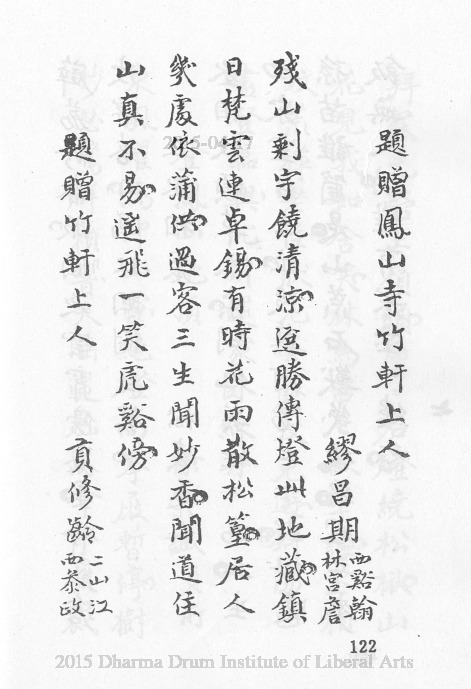 題贈鳳山寺竹軒上人
繆昌期 西谿翰
林宮詹
残山剩宇饒清涼選勝傳燈此地藏鎮
日梵雲連卓錫有時花雨散松篁居人
幾處依蒲供過客三生聞妙香聞道住
山真不易遙飛一笑虎谿傍
題贈竹軒上人 貢修齡 二山江
西叅政
122
2015 Dharma Drum Institute of Liberal Arts